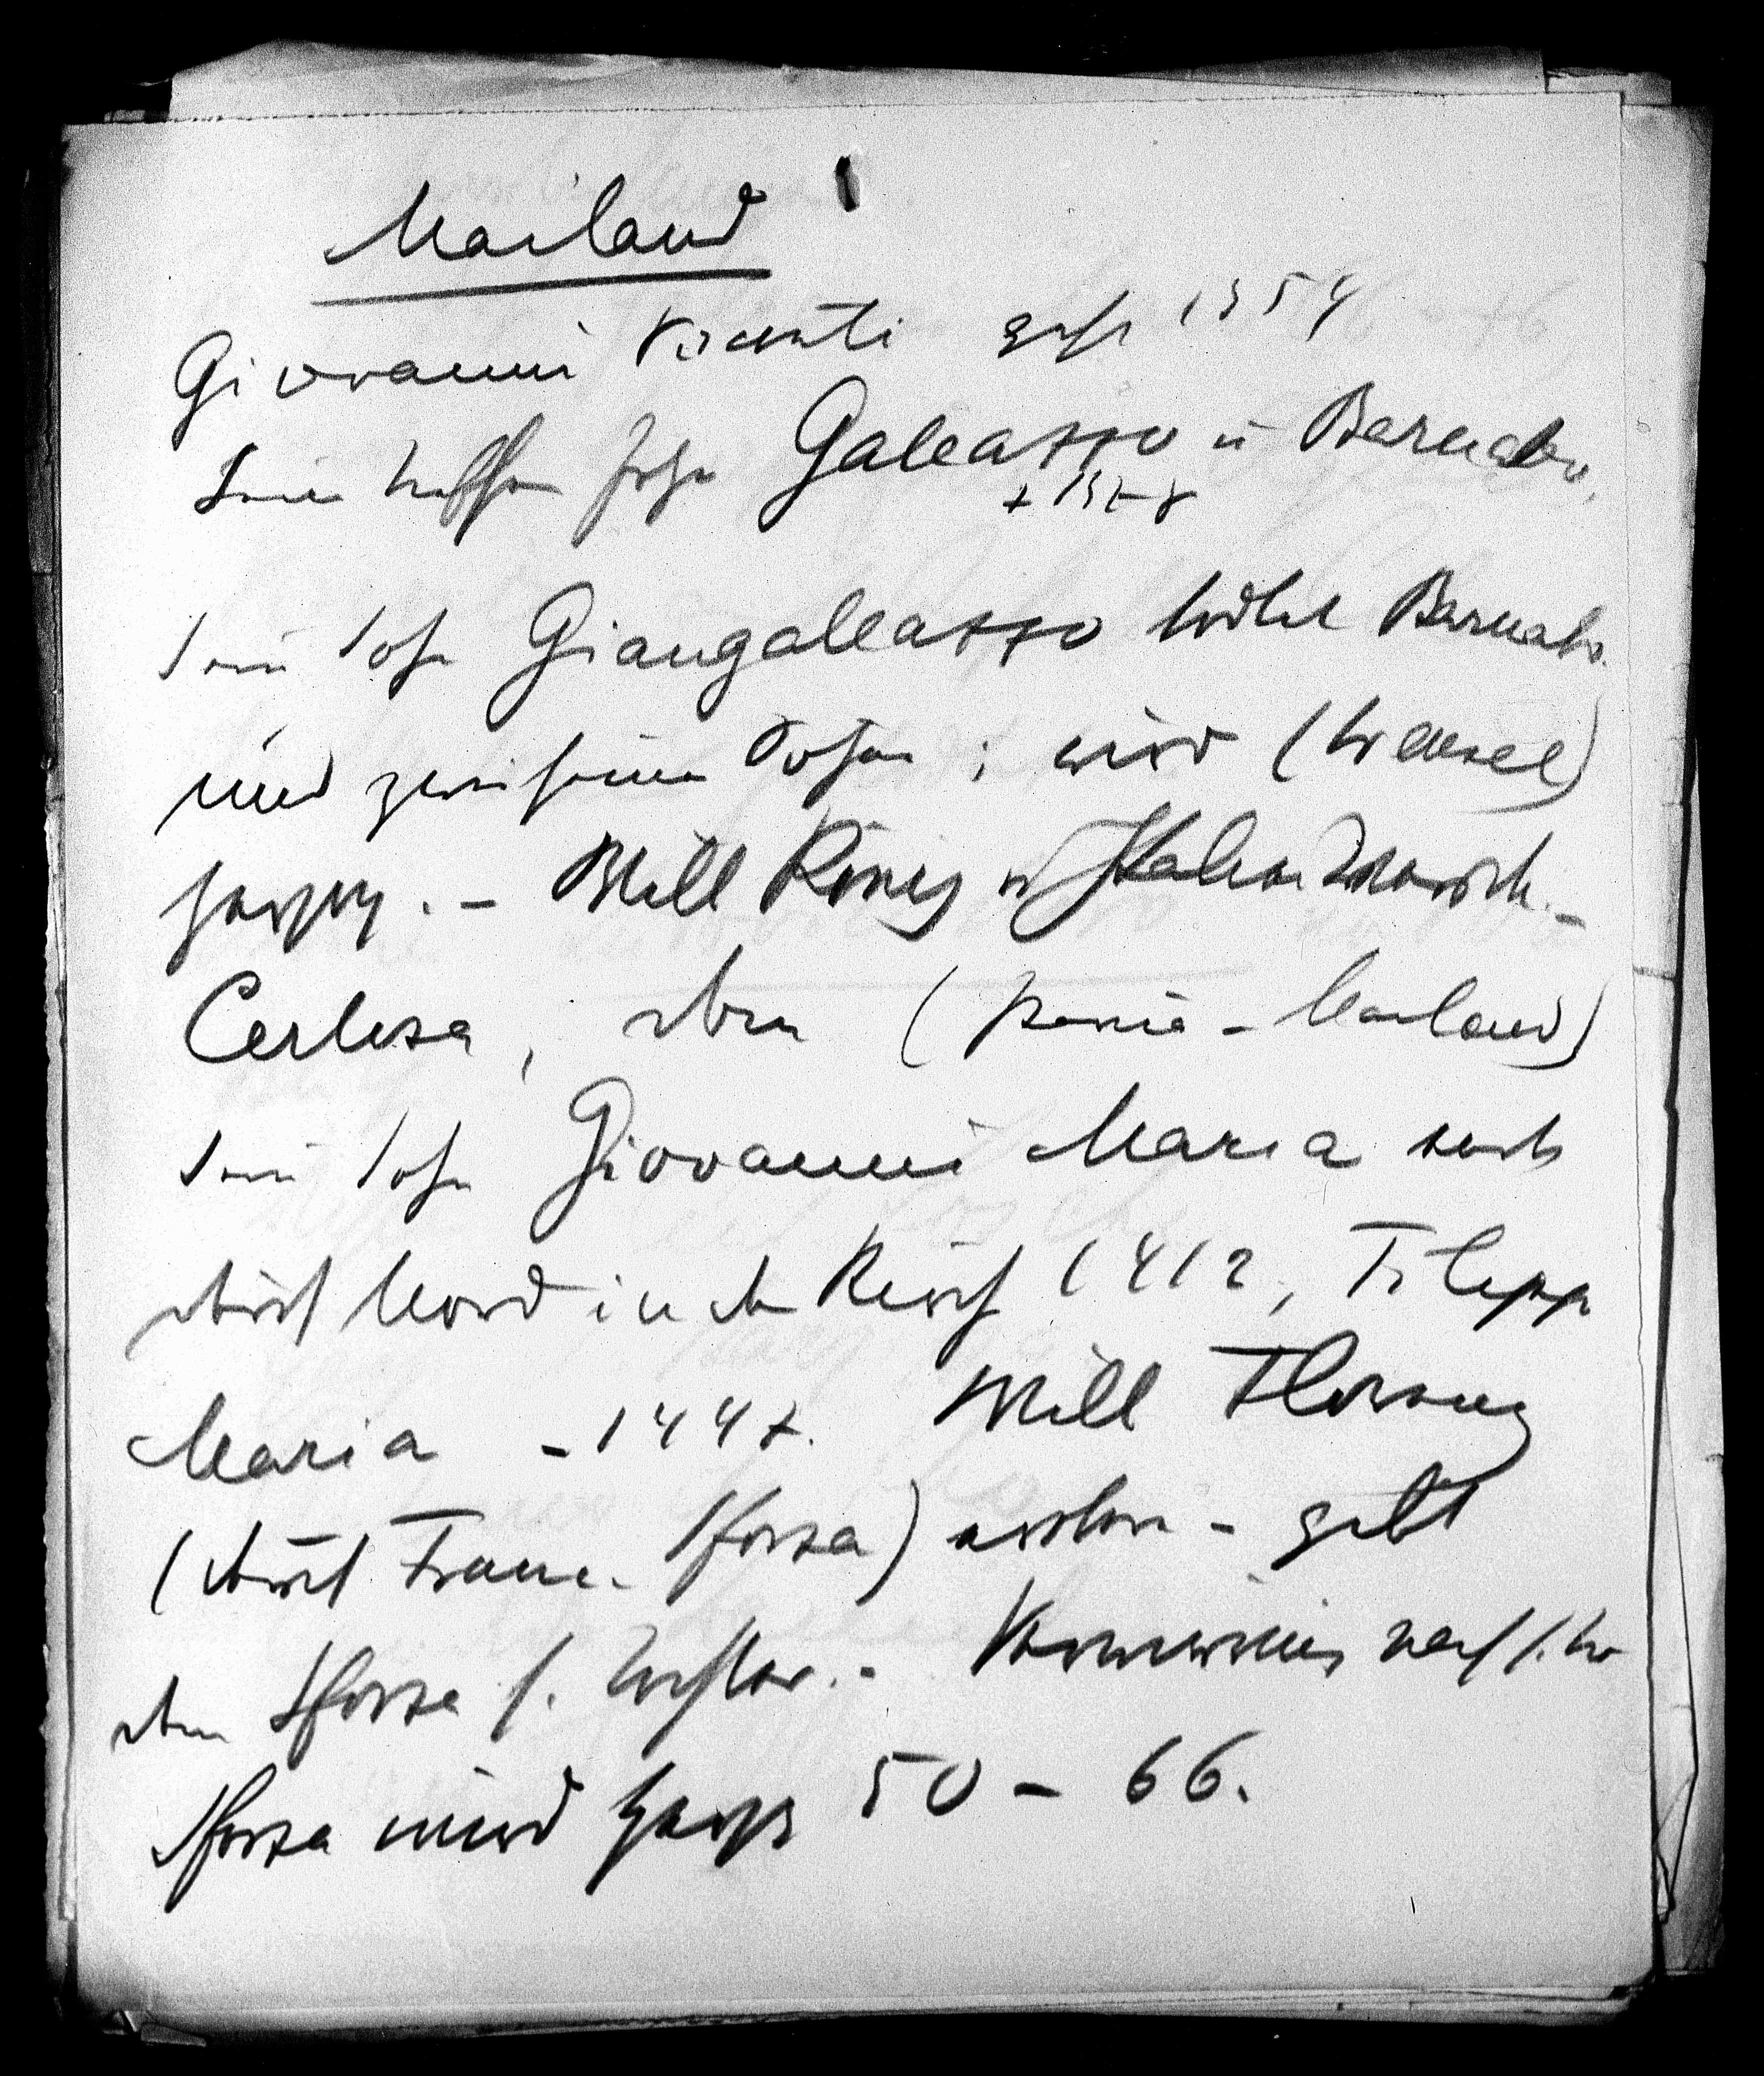 Mailand
Giovanni Visconti gest 1354
Seine Neffen folgen Galeazzo u Barnabo,
+ 1378
Sein Sohn Giangaleazzo tödtet Barnabo
und zwei seiner Söhne; wird (Wenzel)
Herzog. - Will König v Italien werden -
Certosa, Dom (Pavia - Mailand)
Sein Sohn Giovanni Maria
durch Mord in der Kirche 1412, Filippo
Maria - 1447. Will Florenz
(durch Franc. Sforza) erobern - gibt
dem Sforza s. Tochter. - nach s. Tod
Sforza wird Herzog 50 - 66.